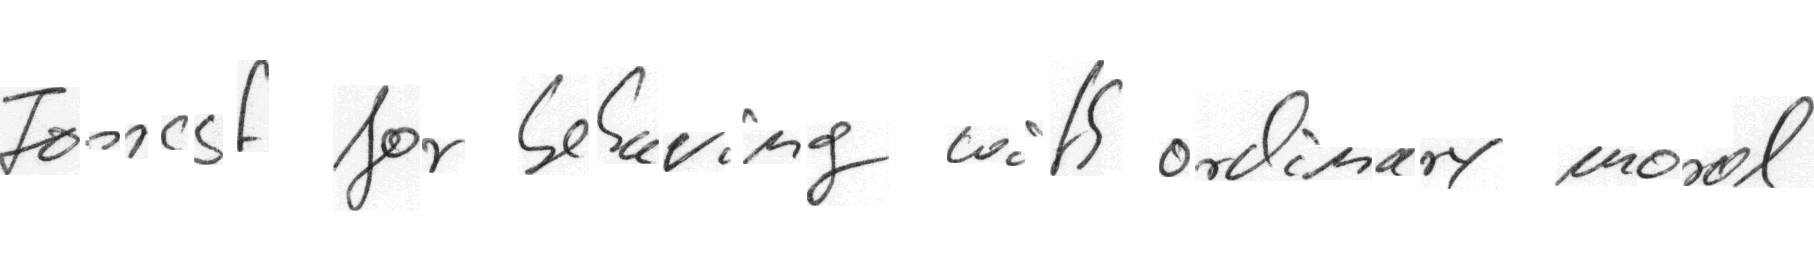 for behaving with ordinary moral